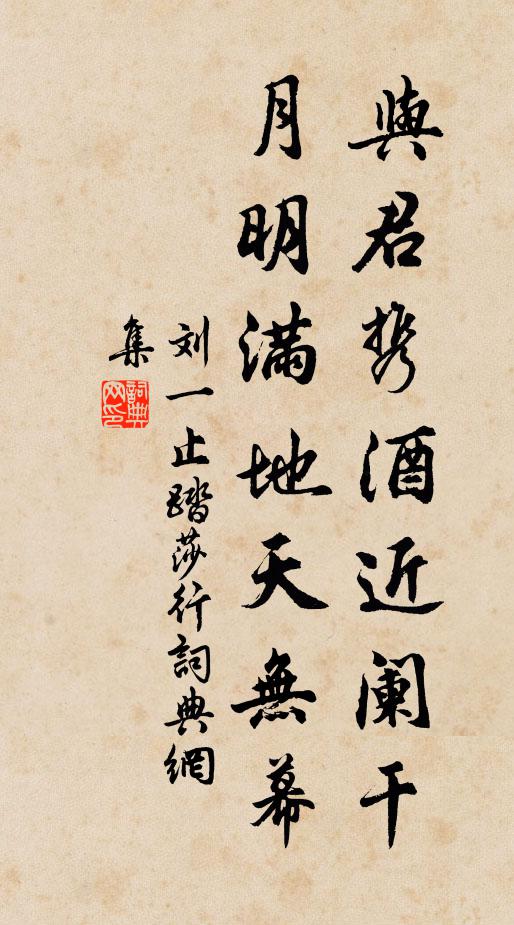 與君携酒近阑干
月明满地天無幕
刘一止踏莎行詞典網
集
詞典网印